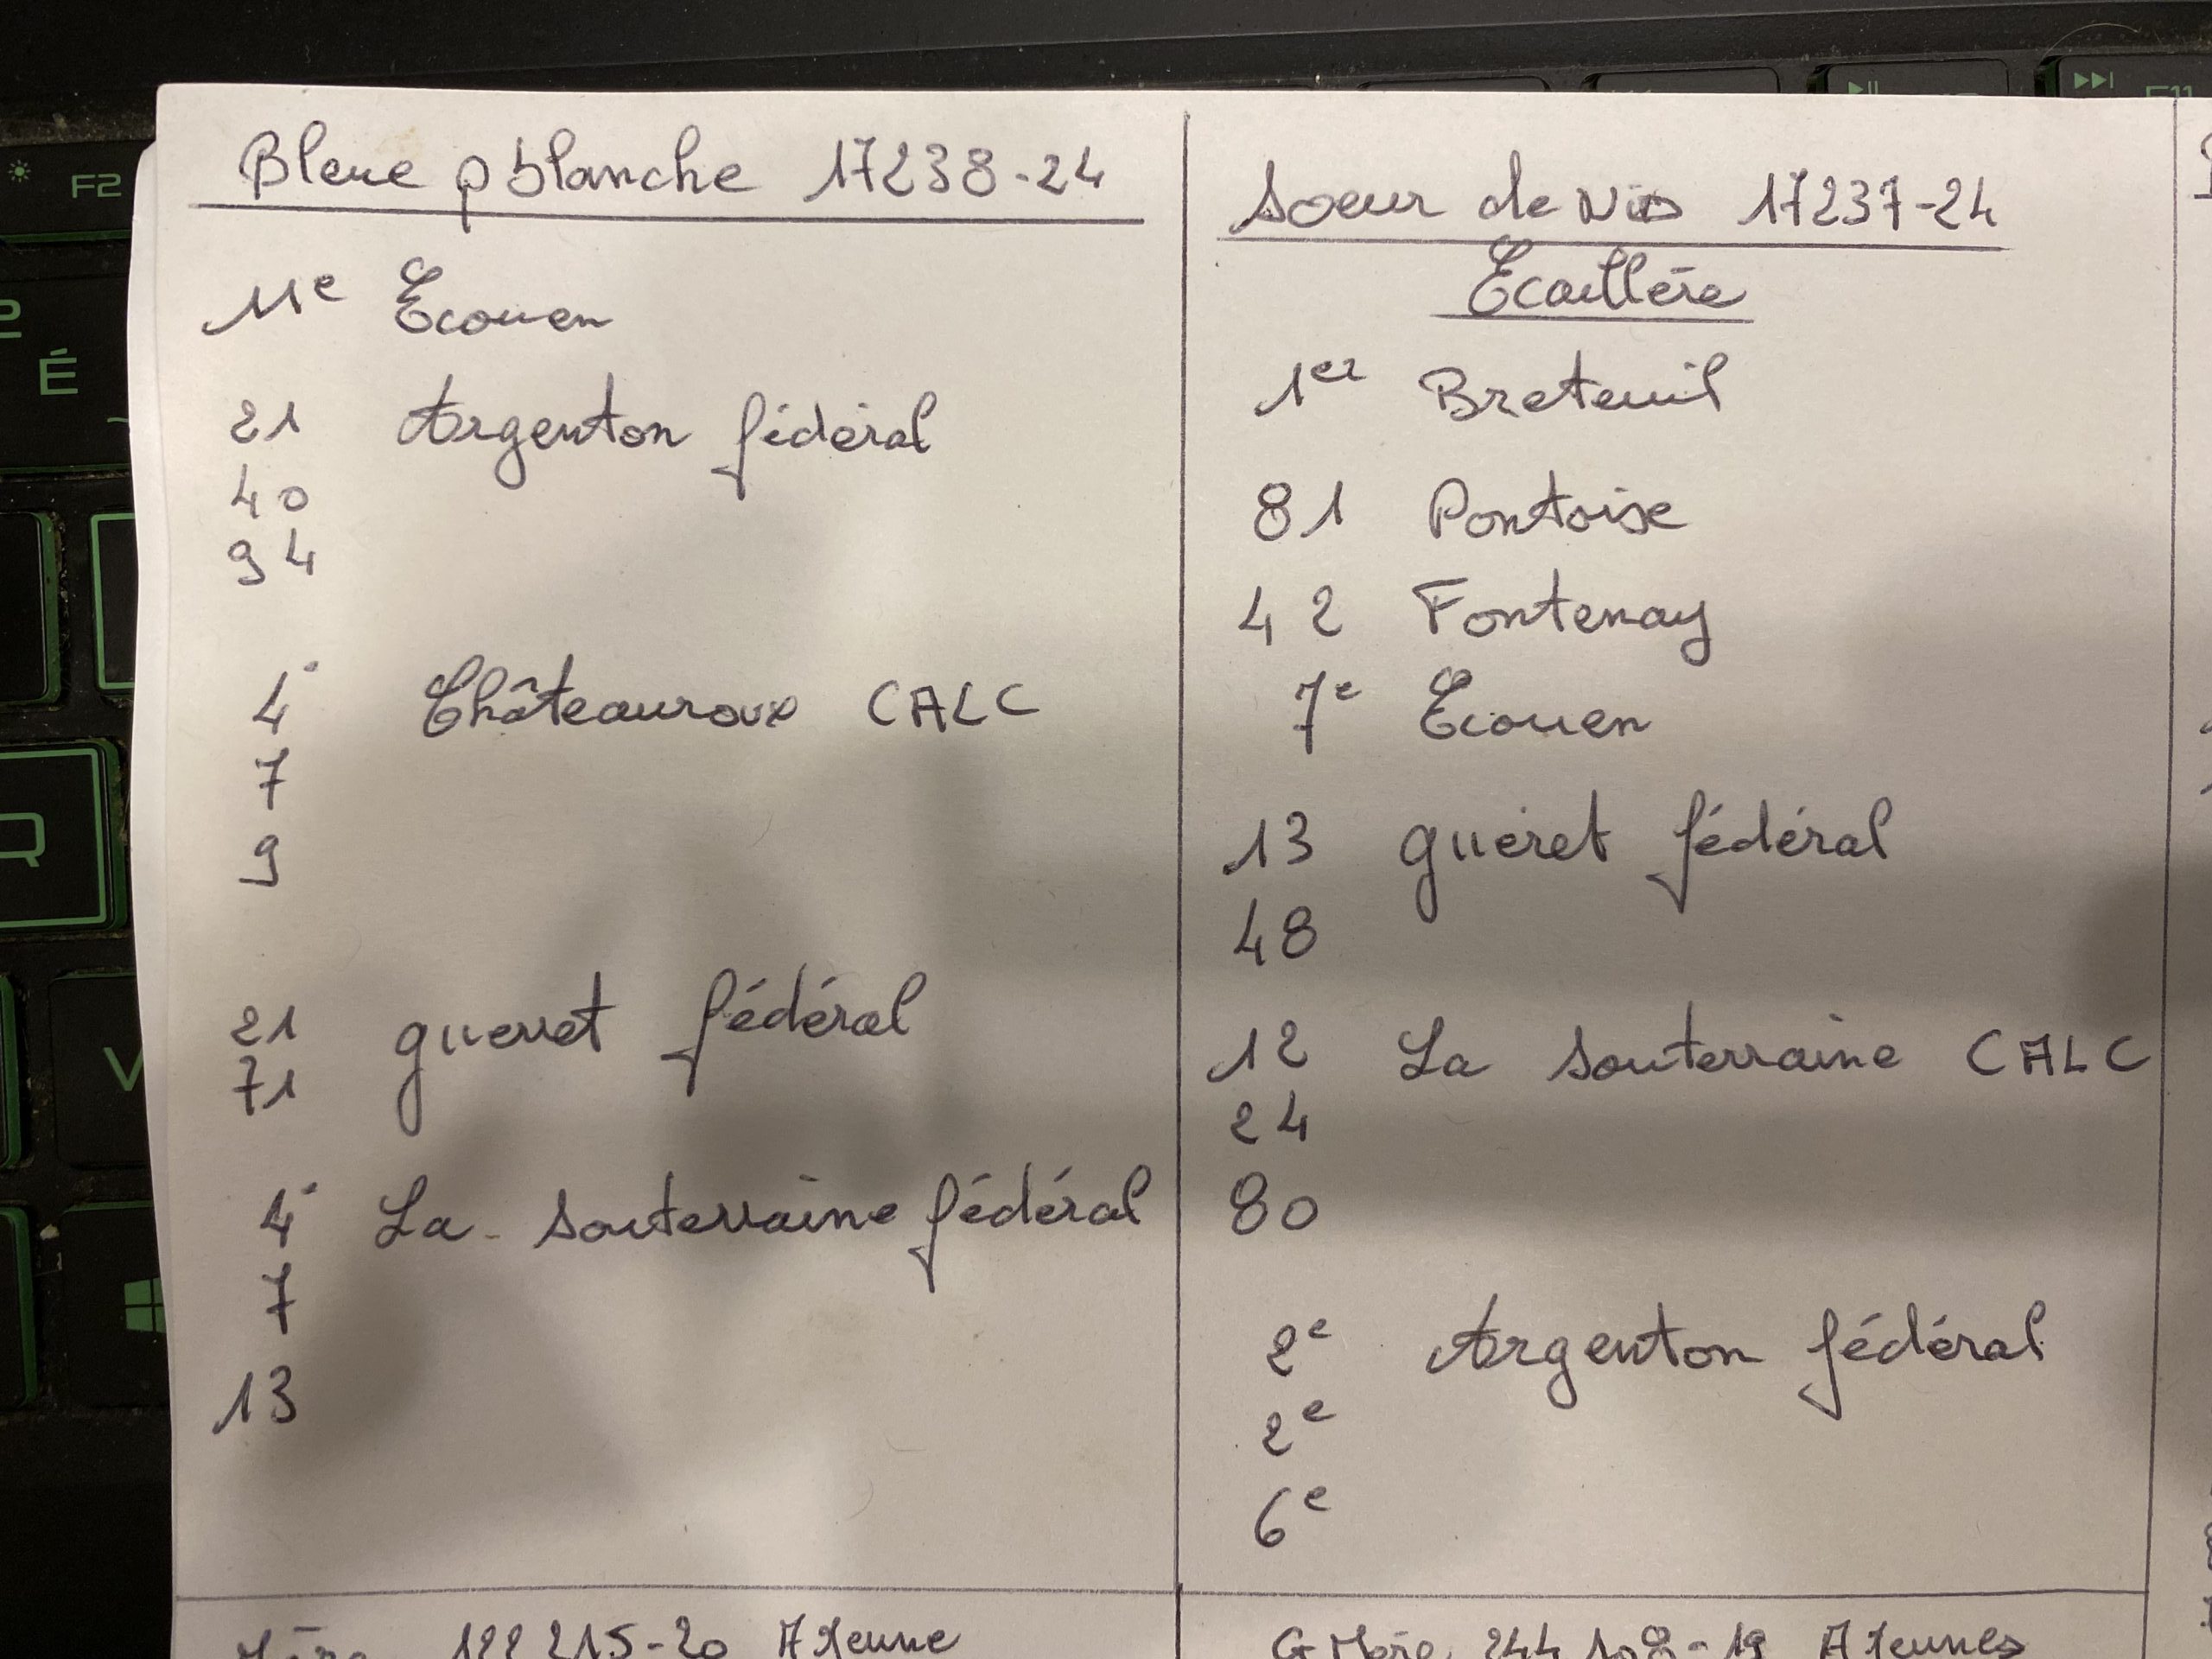 Bleue p blanche 17238-24
11e Ecouen
21 Argenton fédéral
40
94
4e Châteauroux CALC
7
9
21 gueret fédéral
71
4e La Souterraine fédéral
7
13
122215-20 A Jeune
Soeur de Nid 17237-24
Ecaillée
1er Breteuil
81 Pontoise
42 Fontenay
7e Ecouen
13 guéret fédéral
48
12 La Souterraine CALC
24
80
2e Argenton fédéral
2e
6e
G Mère 244108-19 A Jeunes
F2
É
Q
V
F11